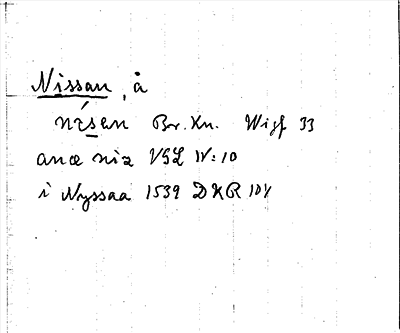 Nissan, å
nísen Br. Kn. Wigf 33
anæ niz VSL IV:10
i Nyssaa 1539 DKR 104